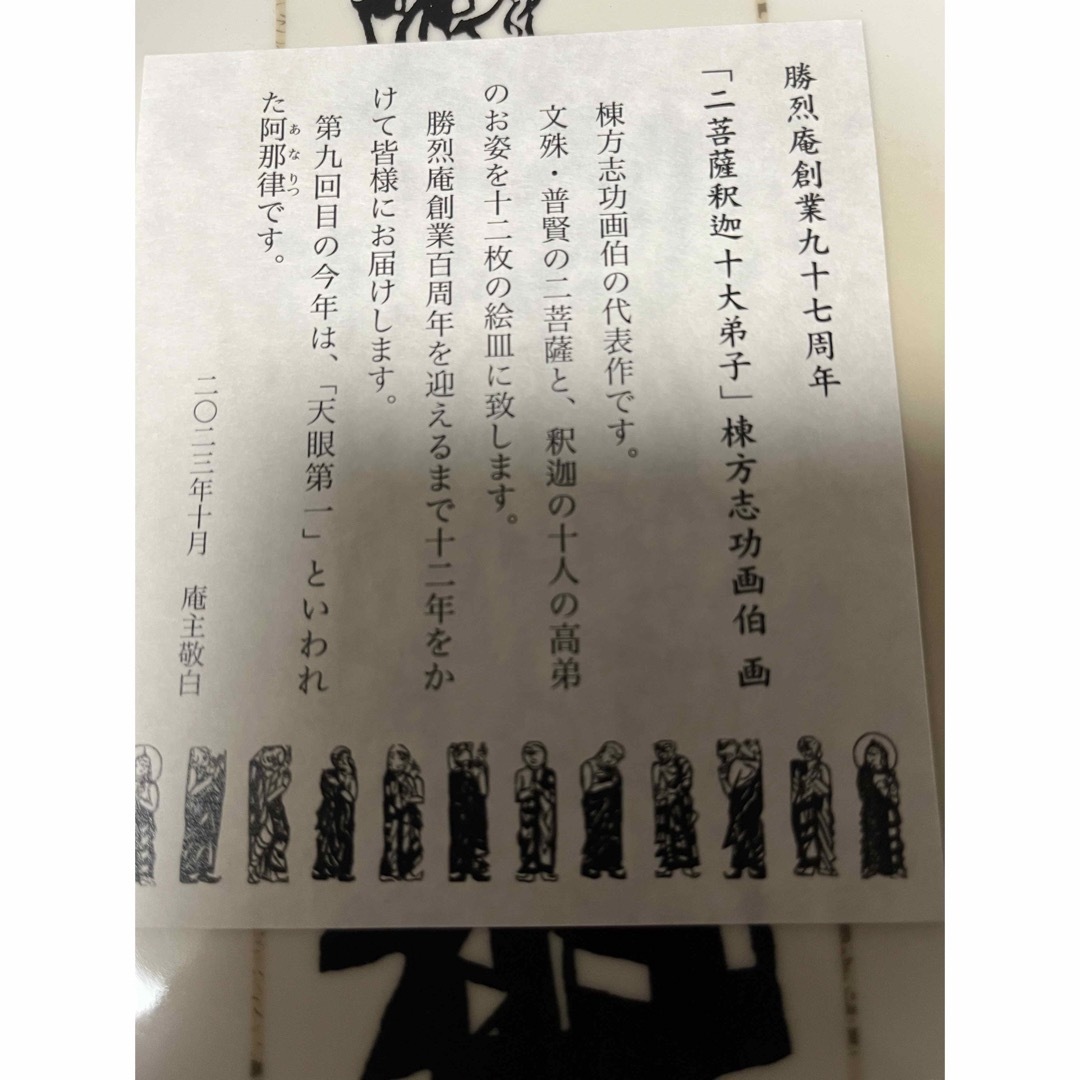 勝烈庵創業九十七周年
「二菩薩釈迦十大弟子」棟方志功画伯 画
棟方志功画伯の代表作です。
文殊・普賢の二菩薩と、釈迦の十人の高弟
のお姿を十二枚の絵皿に致します。
勝烈庵創業百周年を迎えるまで十二年をか
けて皆様にお届けします。
第九回目の今年は、「天眼第一」といわれ
た阿那律です。
あなりつ
二〇二三年十月 庵主敬白